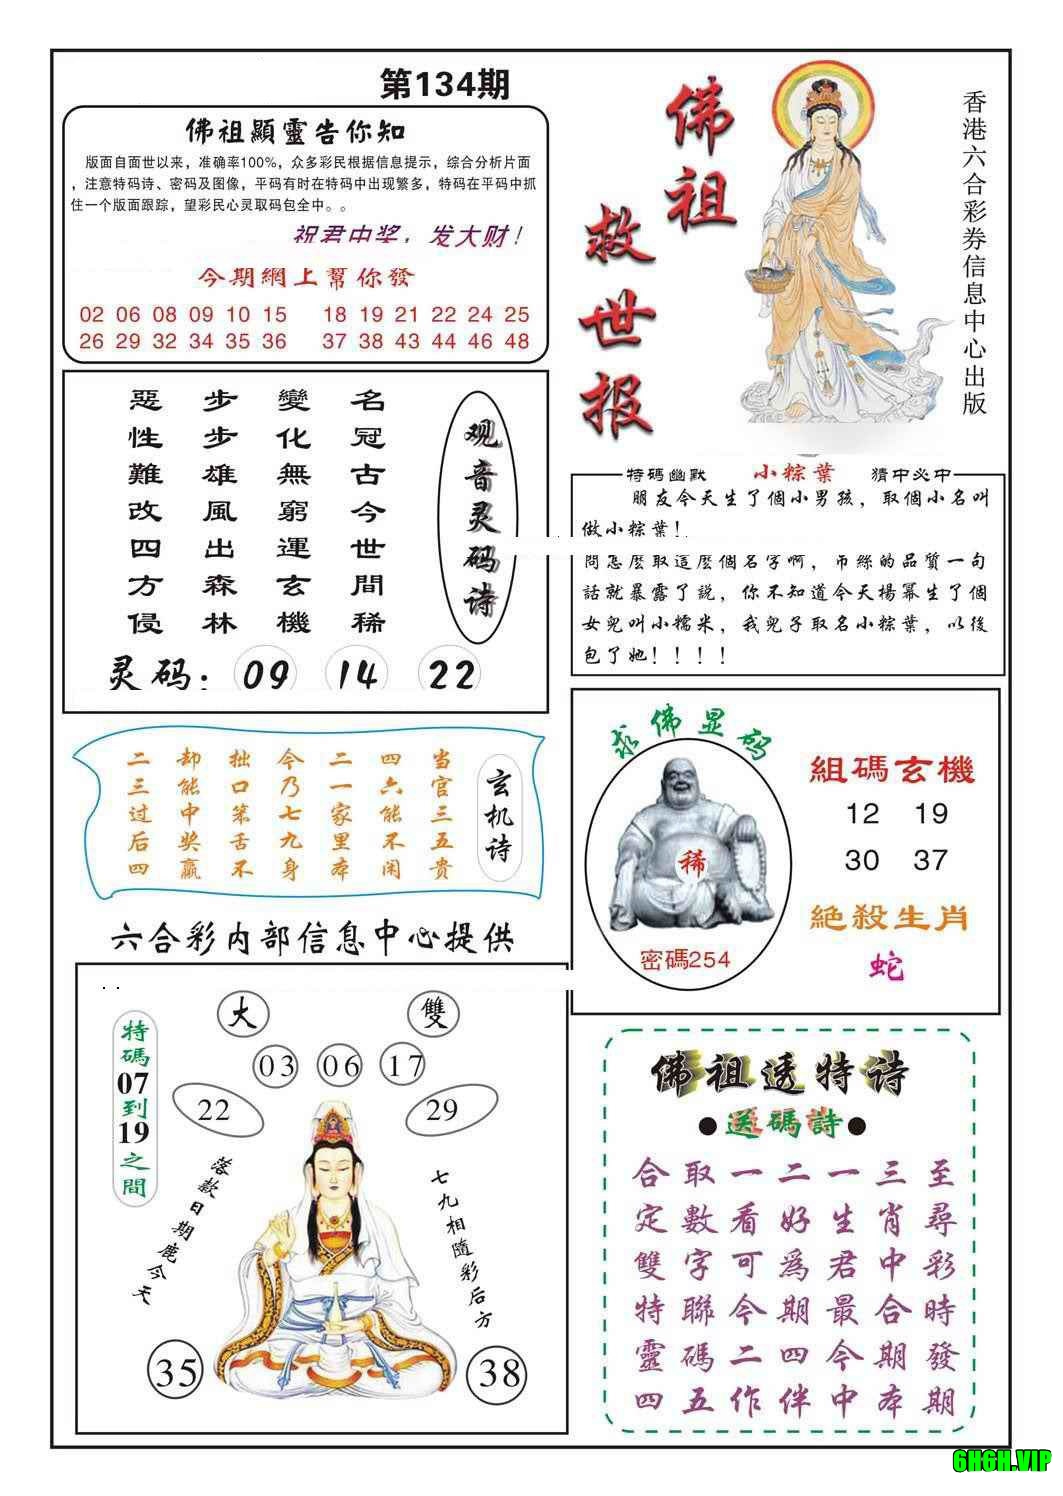 第134期
佛祖顯靈告你知
版面自面世以来，准确率100%，众多彩民根据信息提示，综合分析片面
，注意特码诗、密码及图像，平码有时在特码中出现繁多，特码在平码中抓
住一个版面跟踪，望彩民心灵取码包全中。。
祝君中奖，发大财！
今期網上幫你發
02 06 08 09 10 15 18 19 21 22 24 25
26 29 32 34 35 36 37 38 43 44 46 48
佛祖
救世报
香港六合彩券信息中心出版
观音灵码诗
名冠古今世間稀
變化無窮運玄機
步步雄風出森林
惡性難改四方侵
灵码：09 14 22
特碼幽默 小粽葉 猜中必中
朋友今天生了個小男孩，取個小名叫
做小粽葉！
問怎麼取這麼個名字啊，币絲的品質一句
話就暴露了説，你不知道今天楊冪生了個
女兒叫小糯米，我兒子取名小粽葉，以後
包了她！！！！
玄机诗
当官三五贵
四六能不闲
二一家里本
今乃七九身
拙口笨舌不
却能中奖赢
二三过后四
求佛显码
稀
密碼254
組碼玄機
12 19
30 37
絕殺生肖
蛇
六合彩内部信息中心提供
特碼07到19之間
大 雙
03 06 17
22 29
落款日期鹿今天
七九相隨彩后方
35 38
佛祖透特诗
●送碼詩●
至尋彩時發期
三肖中合期本
一生君最今中
二好為期四伴
一看可今二作
取數字聯碼五
合定雙特靈四
6H6H.VIP